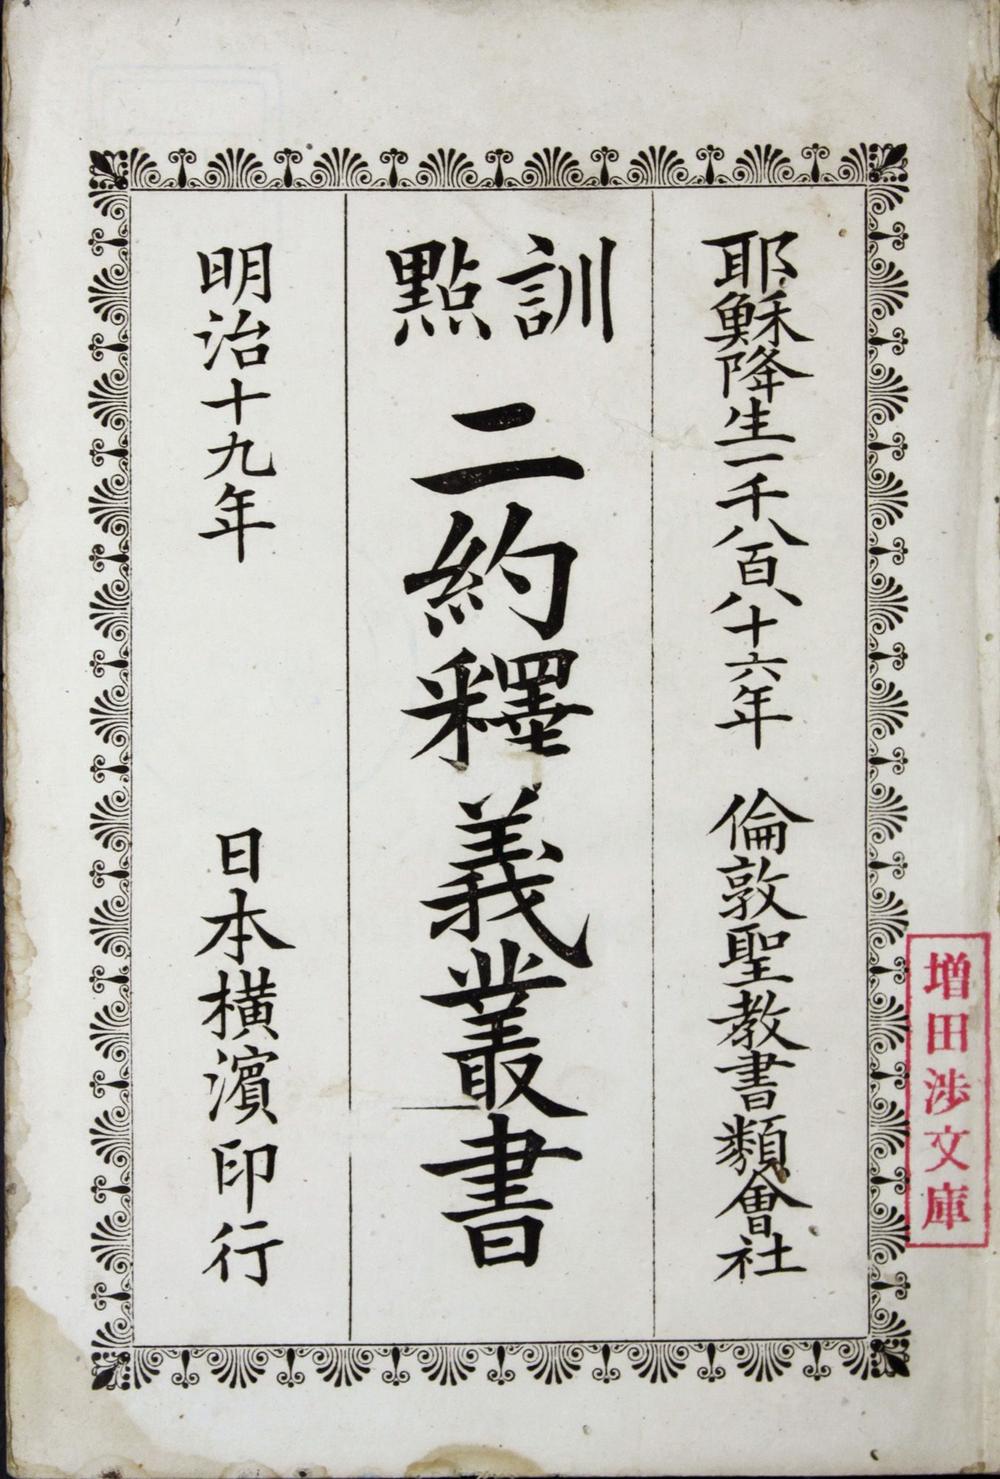 耶穌降生一千八百八十六年 倫敦聖教書類會社
訓點
二約釋義叢書
明治十九年 日本橫濱印行
増田渉文庫